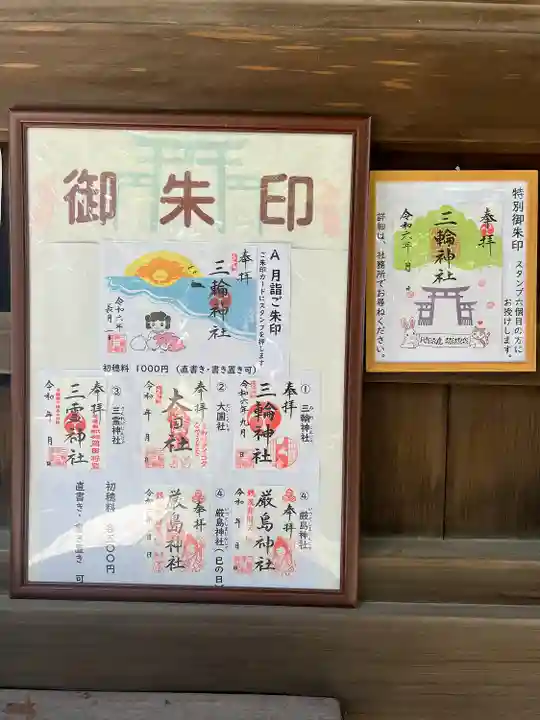 御朱印
A 月詣ご朱印
ご朱印カードにスタンプを押します
奉拝
三輪神社
令和六年
長月
初穂料 1000円 (直書き・書き置き可)
① 三輪神社
奉拝
三輪神社
令和六年九月 日
② 大國社
奉拝
大國社
令和 年 月 日
③ 三霊神社
奉拝
三霊神社
令和 年 月 日
④ 厳島神社
奉拝
厳島神社
令和 年 月 日
④ 厳島神社(巳の日)
奉拝
厳島神社
令和 年 月 日
初穂料 各500円
直書き・書き置き 可
特別御朱印
スタンプ六個目の方に
お授けします。
奉拝
三輪神社
令和六年 月 日
詳細は、社務所でお尋ねください。